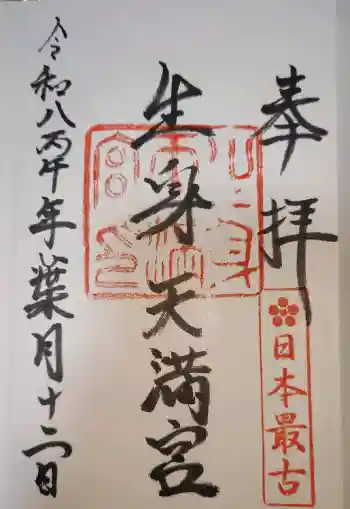 奉拝
日本最古
生身天満宮
令和八丙午年葉月十二日